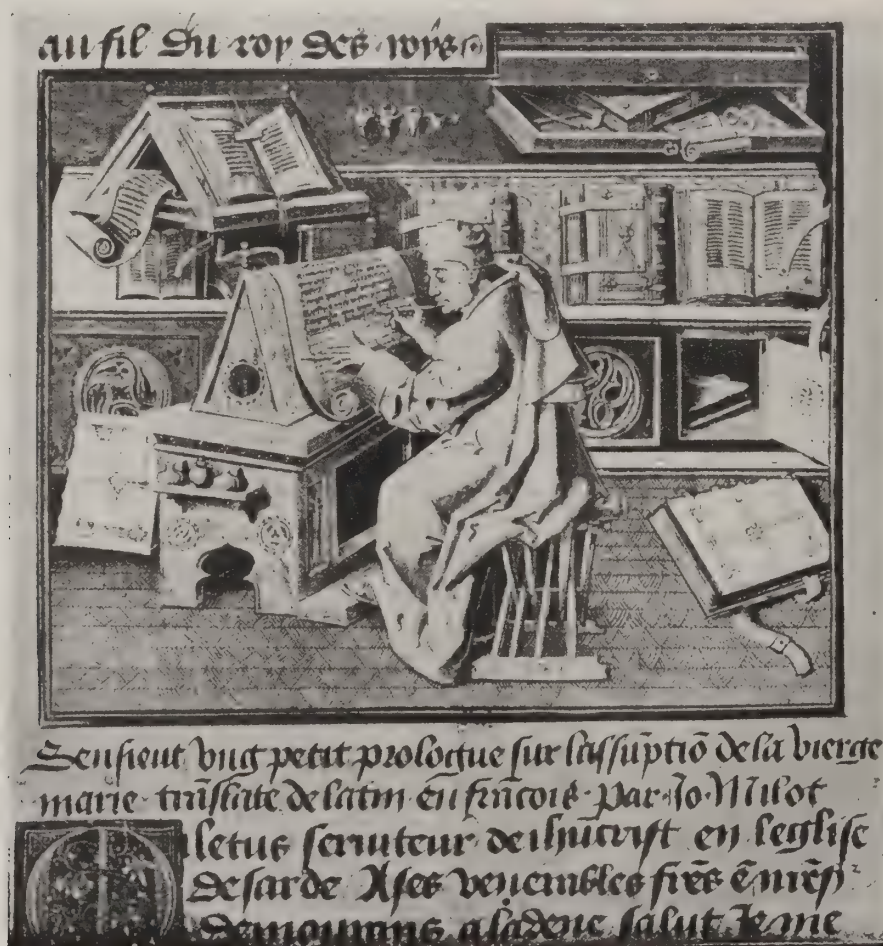 au fil du roy des roys
Sensieut vng petit prologue sur lassūptiō de la vierge
marie trāslate de latin en frācois par Jo Milot
Miletus seruiteur de ihūcrist en leglise
de sarde A ses venerables frēs
demourans a ladene salut Je me